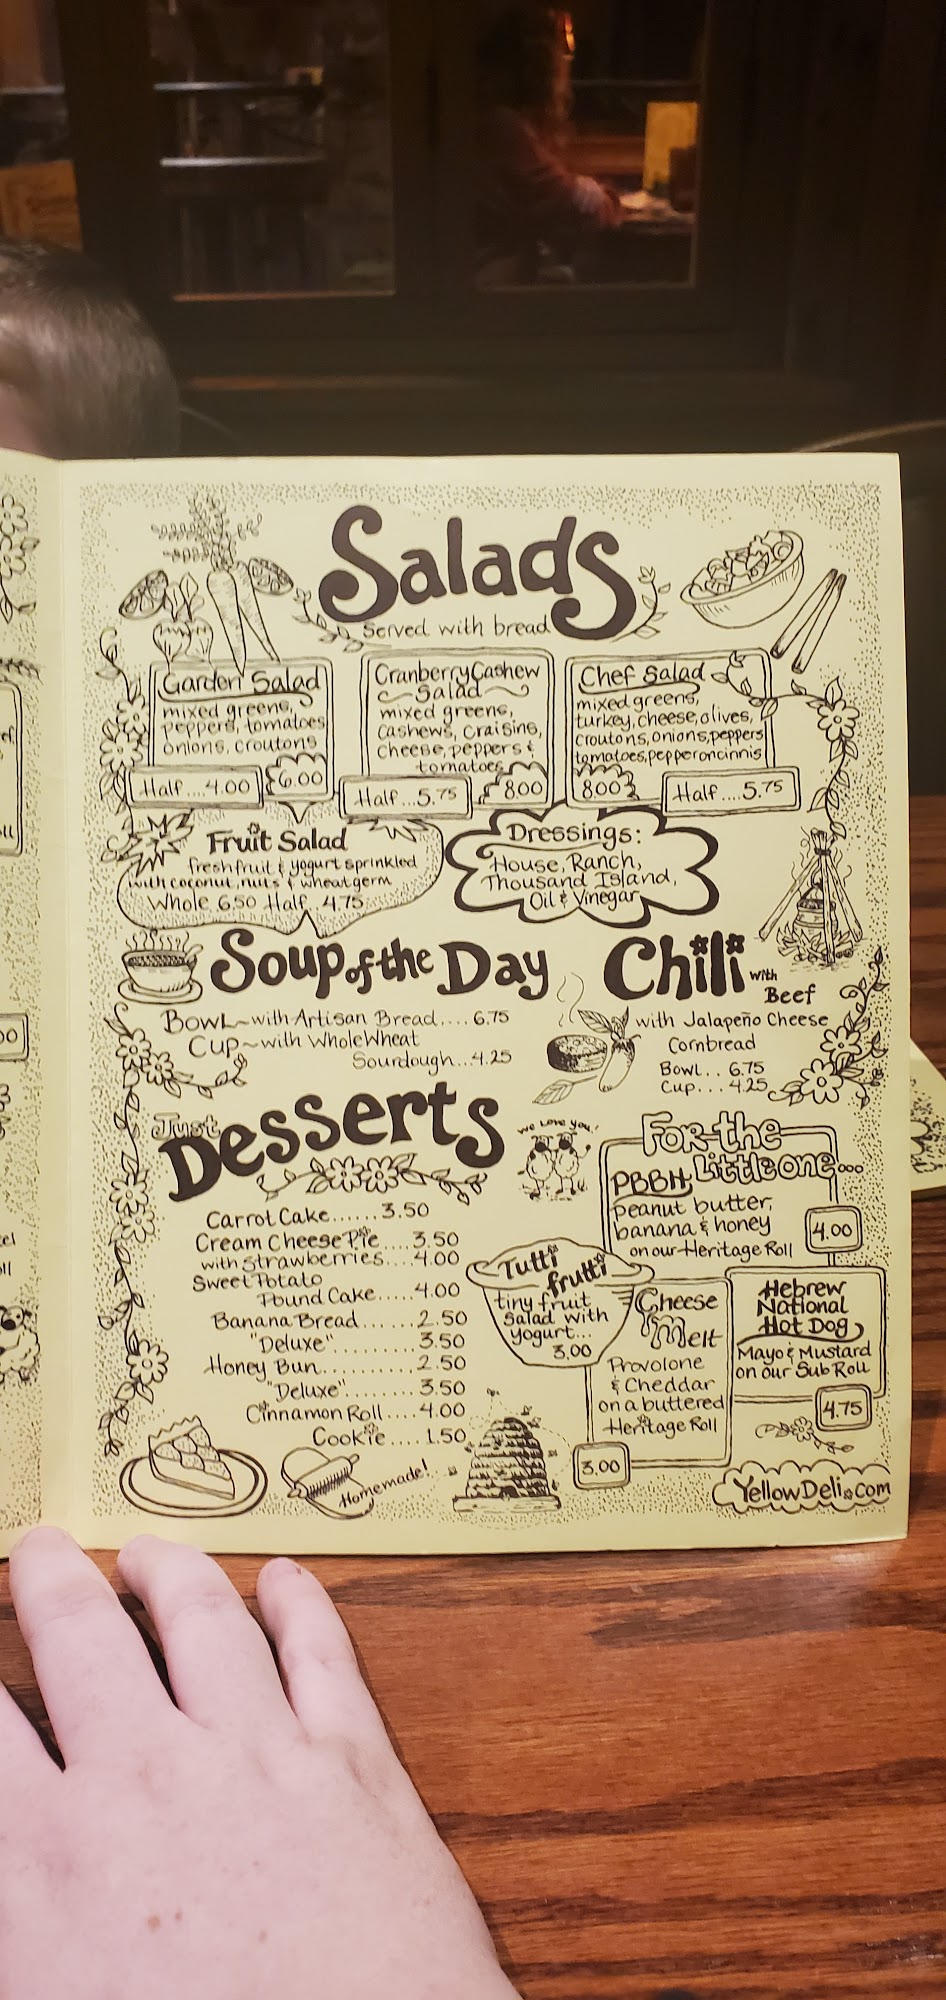 Salads
Served with bread
Garden Salad
mixed greens,
peppers, tomatoes
onions, croutons
Half...4.00
6.00
Cranberry Cashew
Salad
mixed greens,
cashews, craisins,
cheese, peppers &
tomatoes
Half...5.75
8.00
Chef Salad
mixed greens,
turkey, cheese, olives,
croutons, onions, peppers
tomatoes, pepperoncinnis
8.00
Half....5.75
Fruit Salad
fresh fruit & yogurt sprinkled
with coconut, nuts & wheatgerm
Whole 6.50 Half 4.75
Dressings:
House, Ranch,
Thousand Island,
Oil & Vinegar
Soup of the Day
Bowl~with Artisan Bread....6.75
Cup~with Whole Wheat
Sourdough...4.25
Chili with
Beef
with Jalapeño Cheese
Cornbread
Bowl..6.75
Cup...4.25
Just
Desserts
Carrot Cake......3.50
Cream Cheese Pie...3.50
with strawberries....4.00
Sweet Potato
Pound Cake....4.00
Banana Bread......2.50
"Deluxe".........3.50
Honey Bun.........2.50
"Deluxe".........3.50
Cinnamon Roll....4.00
Cookie....1.50
Homemade!
We love you!
For the
Little one...
PBBH
peanut butter,
banana & honey
on our Heritage Roll
4.00
Tutti
frutti
tiny fruit
salad with
yogurt...
3.00
Cheese
Melt
Provolone
& Cheddar
on a buttered
Heritage Roll
3.00
Hebrew
National
Hot Dog
Mayo & Mustard
on our Sub Roll
4.75
YellowDeli.com